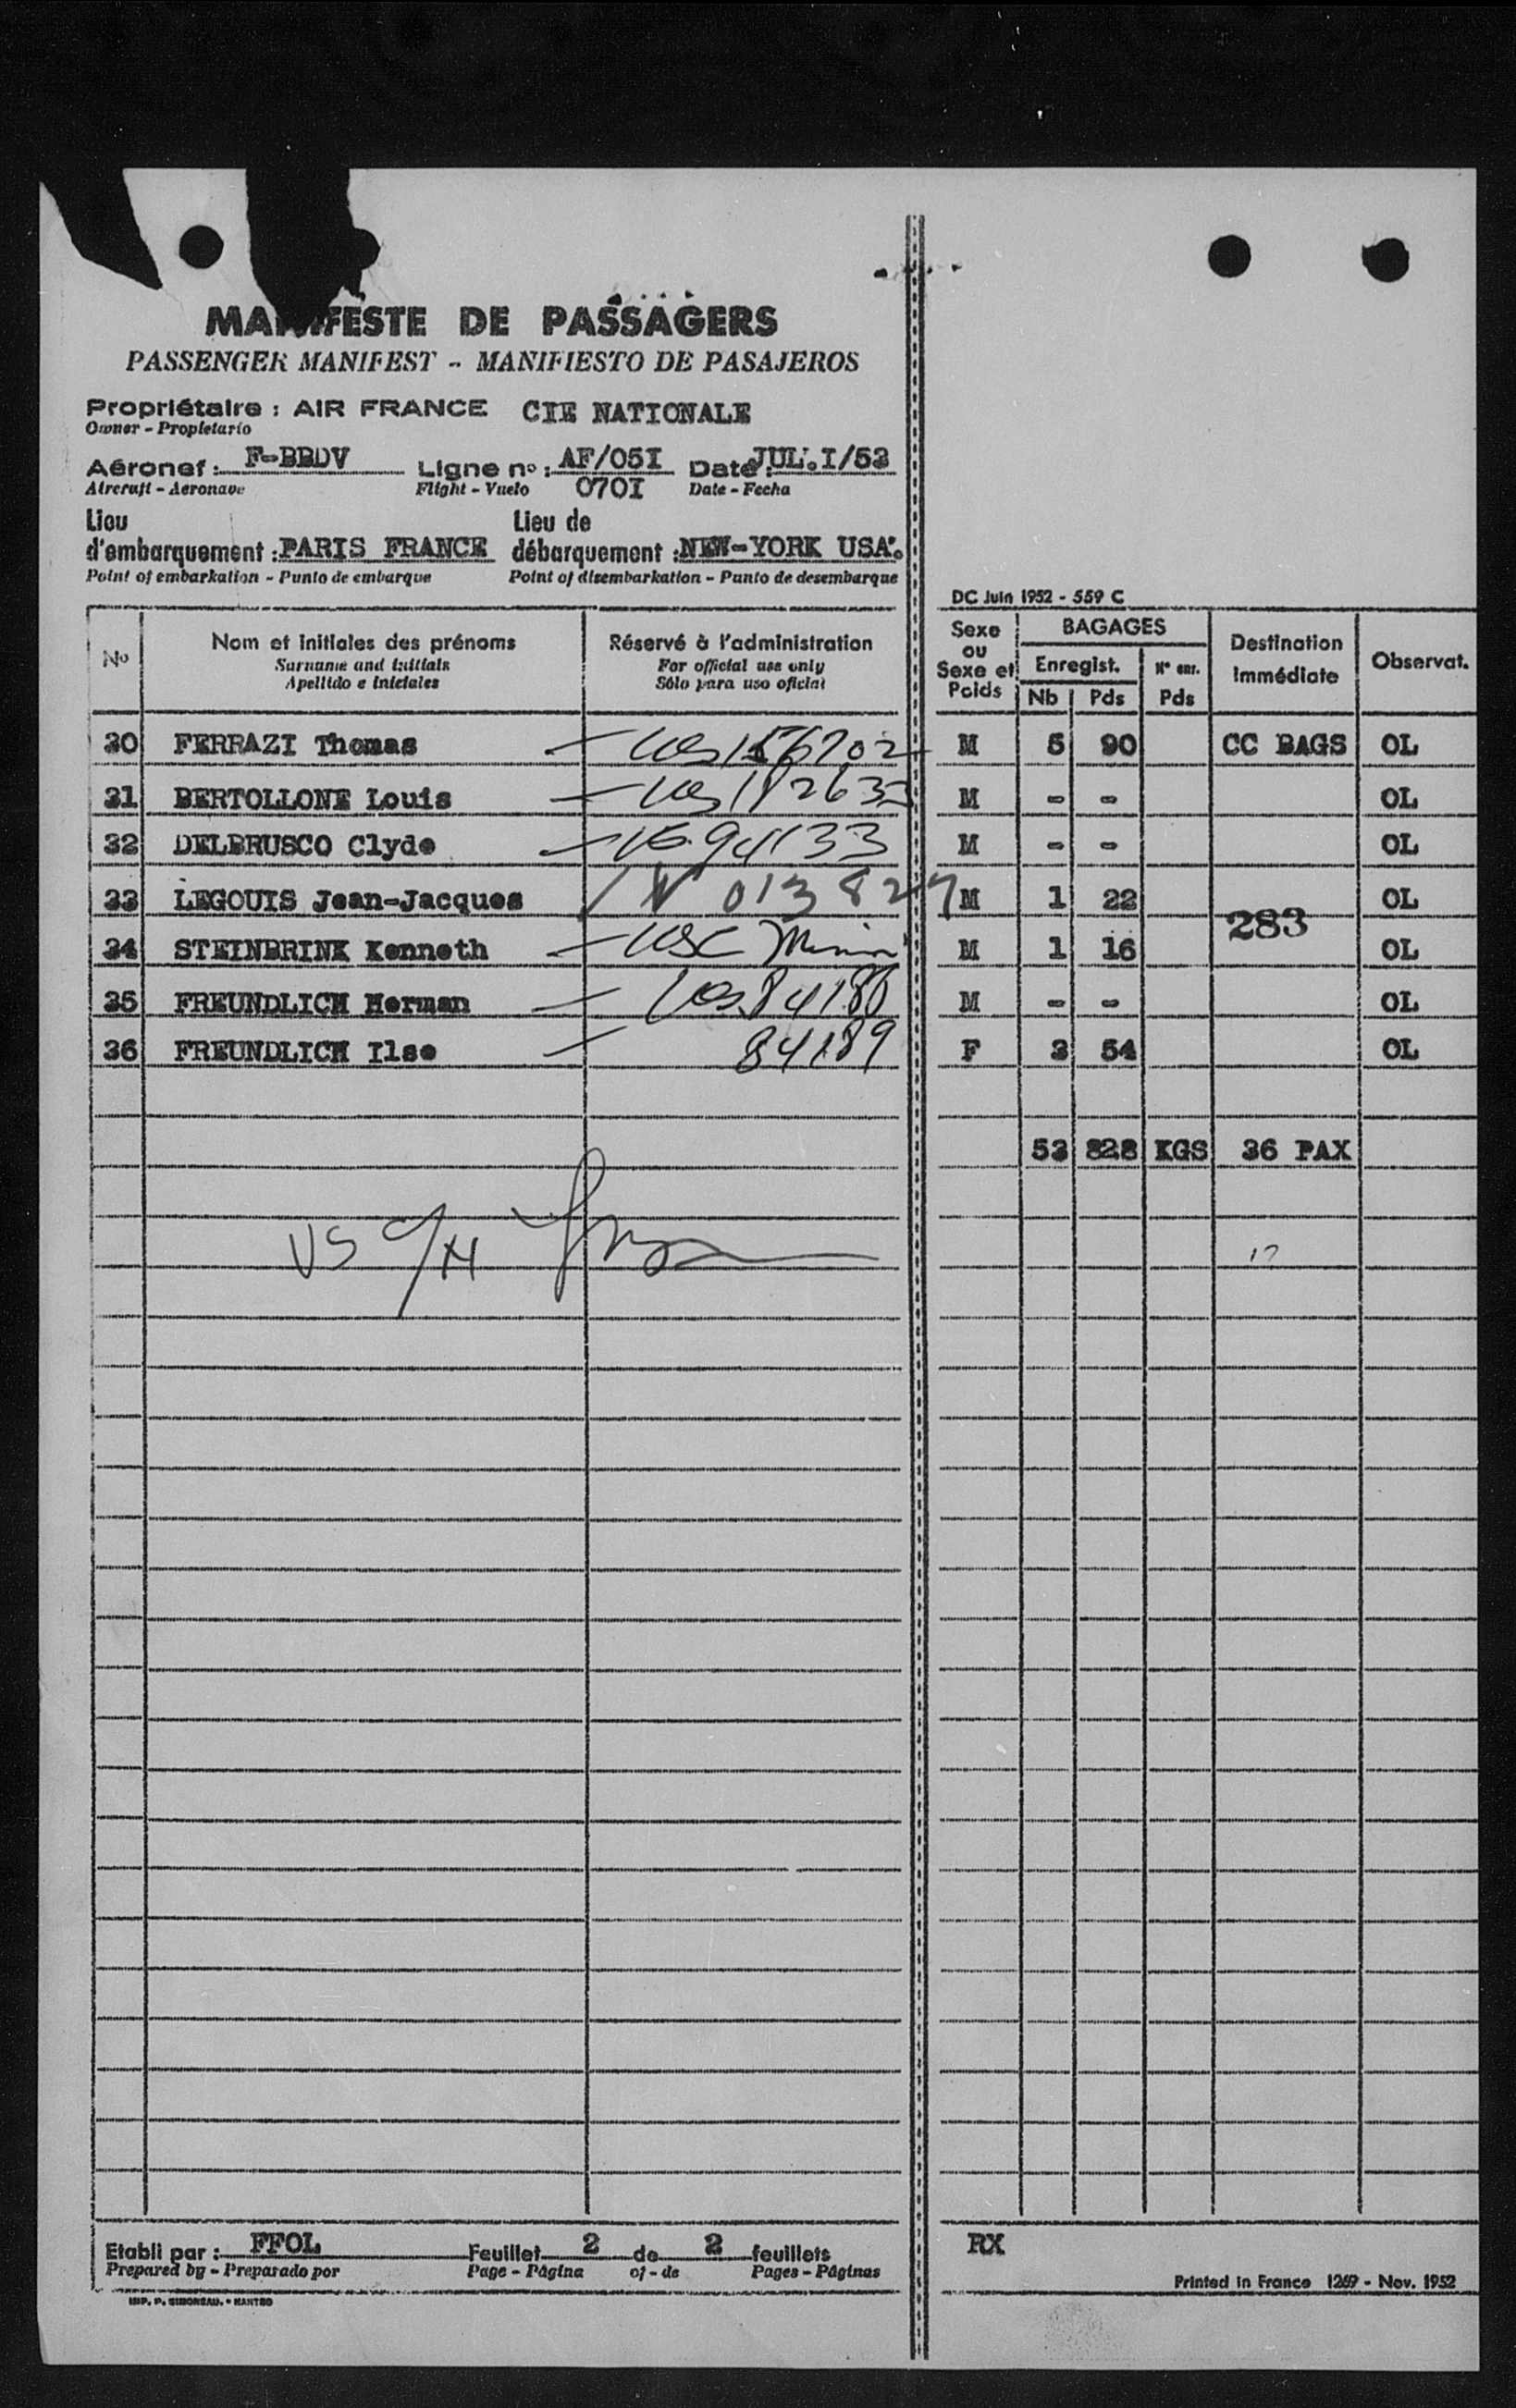 MANIFESTE DE PASSAGERS
PASSENGER MANIFEST - MANIFIESTO DE PASAJEROS
Propriétaire : AIR FRANCE CIE NATIONALE
Owner - Propietario
Aéronef : F-BBDV Ligne nº : AF/05I Date : JUL.I/53
Aircraft - Aeronave Flight - Vuelo 070I Date - Fecha
Lieu d'embarquement : PARIS FRANCE Lieu de débarquement : NEW-YORK USA.
Point of embarkation - Punto de embarque Point of disembarkation - Punto de desembarque
DC Juin 1952 - 559 C
No Nom et initiales des prénoms Réservé à l'administration Sexe ou Sexe et Poids BAGAGES Destination immédiate Observat.
Surname and initials For official use only Enregist. Nº enr.
Apellido e iniciales Sólo para uso oficial Nb Pds Pds
30 FERRAZI Thomas 156702 M 5 90 CC BAGS OL
31 BERTOLLONE Louis 182633 M - - OL
32 DELBRUSCO Clyde 94133 M - - OL
33 LEGOUIS Jean-Jacques V 013827 M 1 22 OL
283
34 STEINBRINK Kenneth USC M 1 16 OL
35 FREUNDLICH Herman 84188 M - - OL
36 FREUNDLICH Ilse 84189 F 3 54 OL
53 828 KGS 36 PAX
VS
17
Etabli par : FFOL Feuillet 2 de 2 feuillets RX
Prepared by - Preparado por Page - Página of - de Pages - Páginas
Printed in France 1269 - Nov. 1952
IMP. P. SIMONEAU. - NANTES